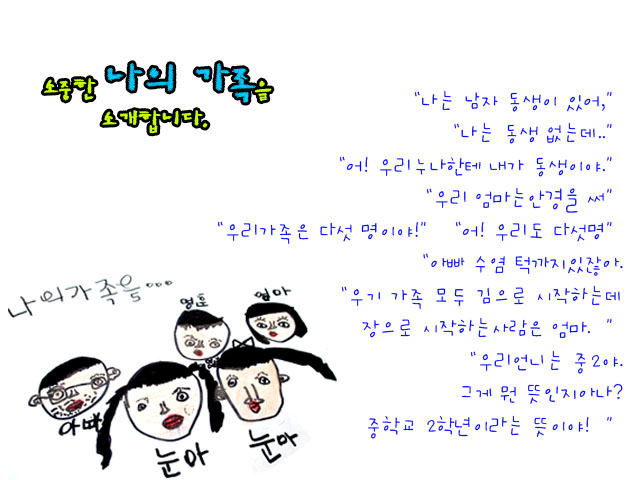 소중한 나의 가족을
소개합니다.
"나는 남자 동생이 있어,"
"나는 동생 없는데.."
"어! 우리누나한테 내가 동생이야."
"우리 엄마는안경을 써"
"우리가족은 다섯 명이야!" "어! 우리도 다섯명"
"아빠 수염 턱까지있잖아.
"우기 가족 모두 김으로 시작하는데
장으로 시작하는사람은 엄마. "
"우리언니는 중2야.
그게 뭔 뜻인지아나?
중학교 2학년이라는 뜻이야! "
나의가족을...
영훈
엄마
아빠
눈아
눈마